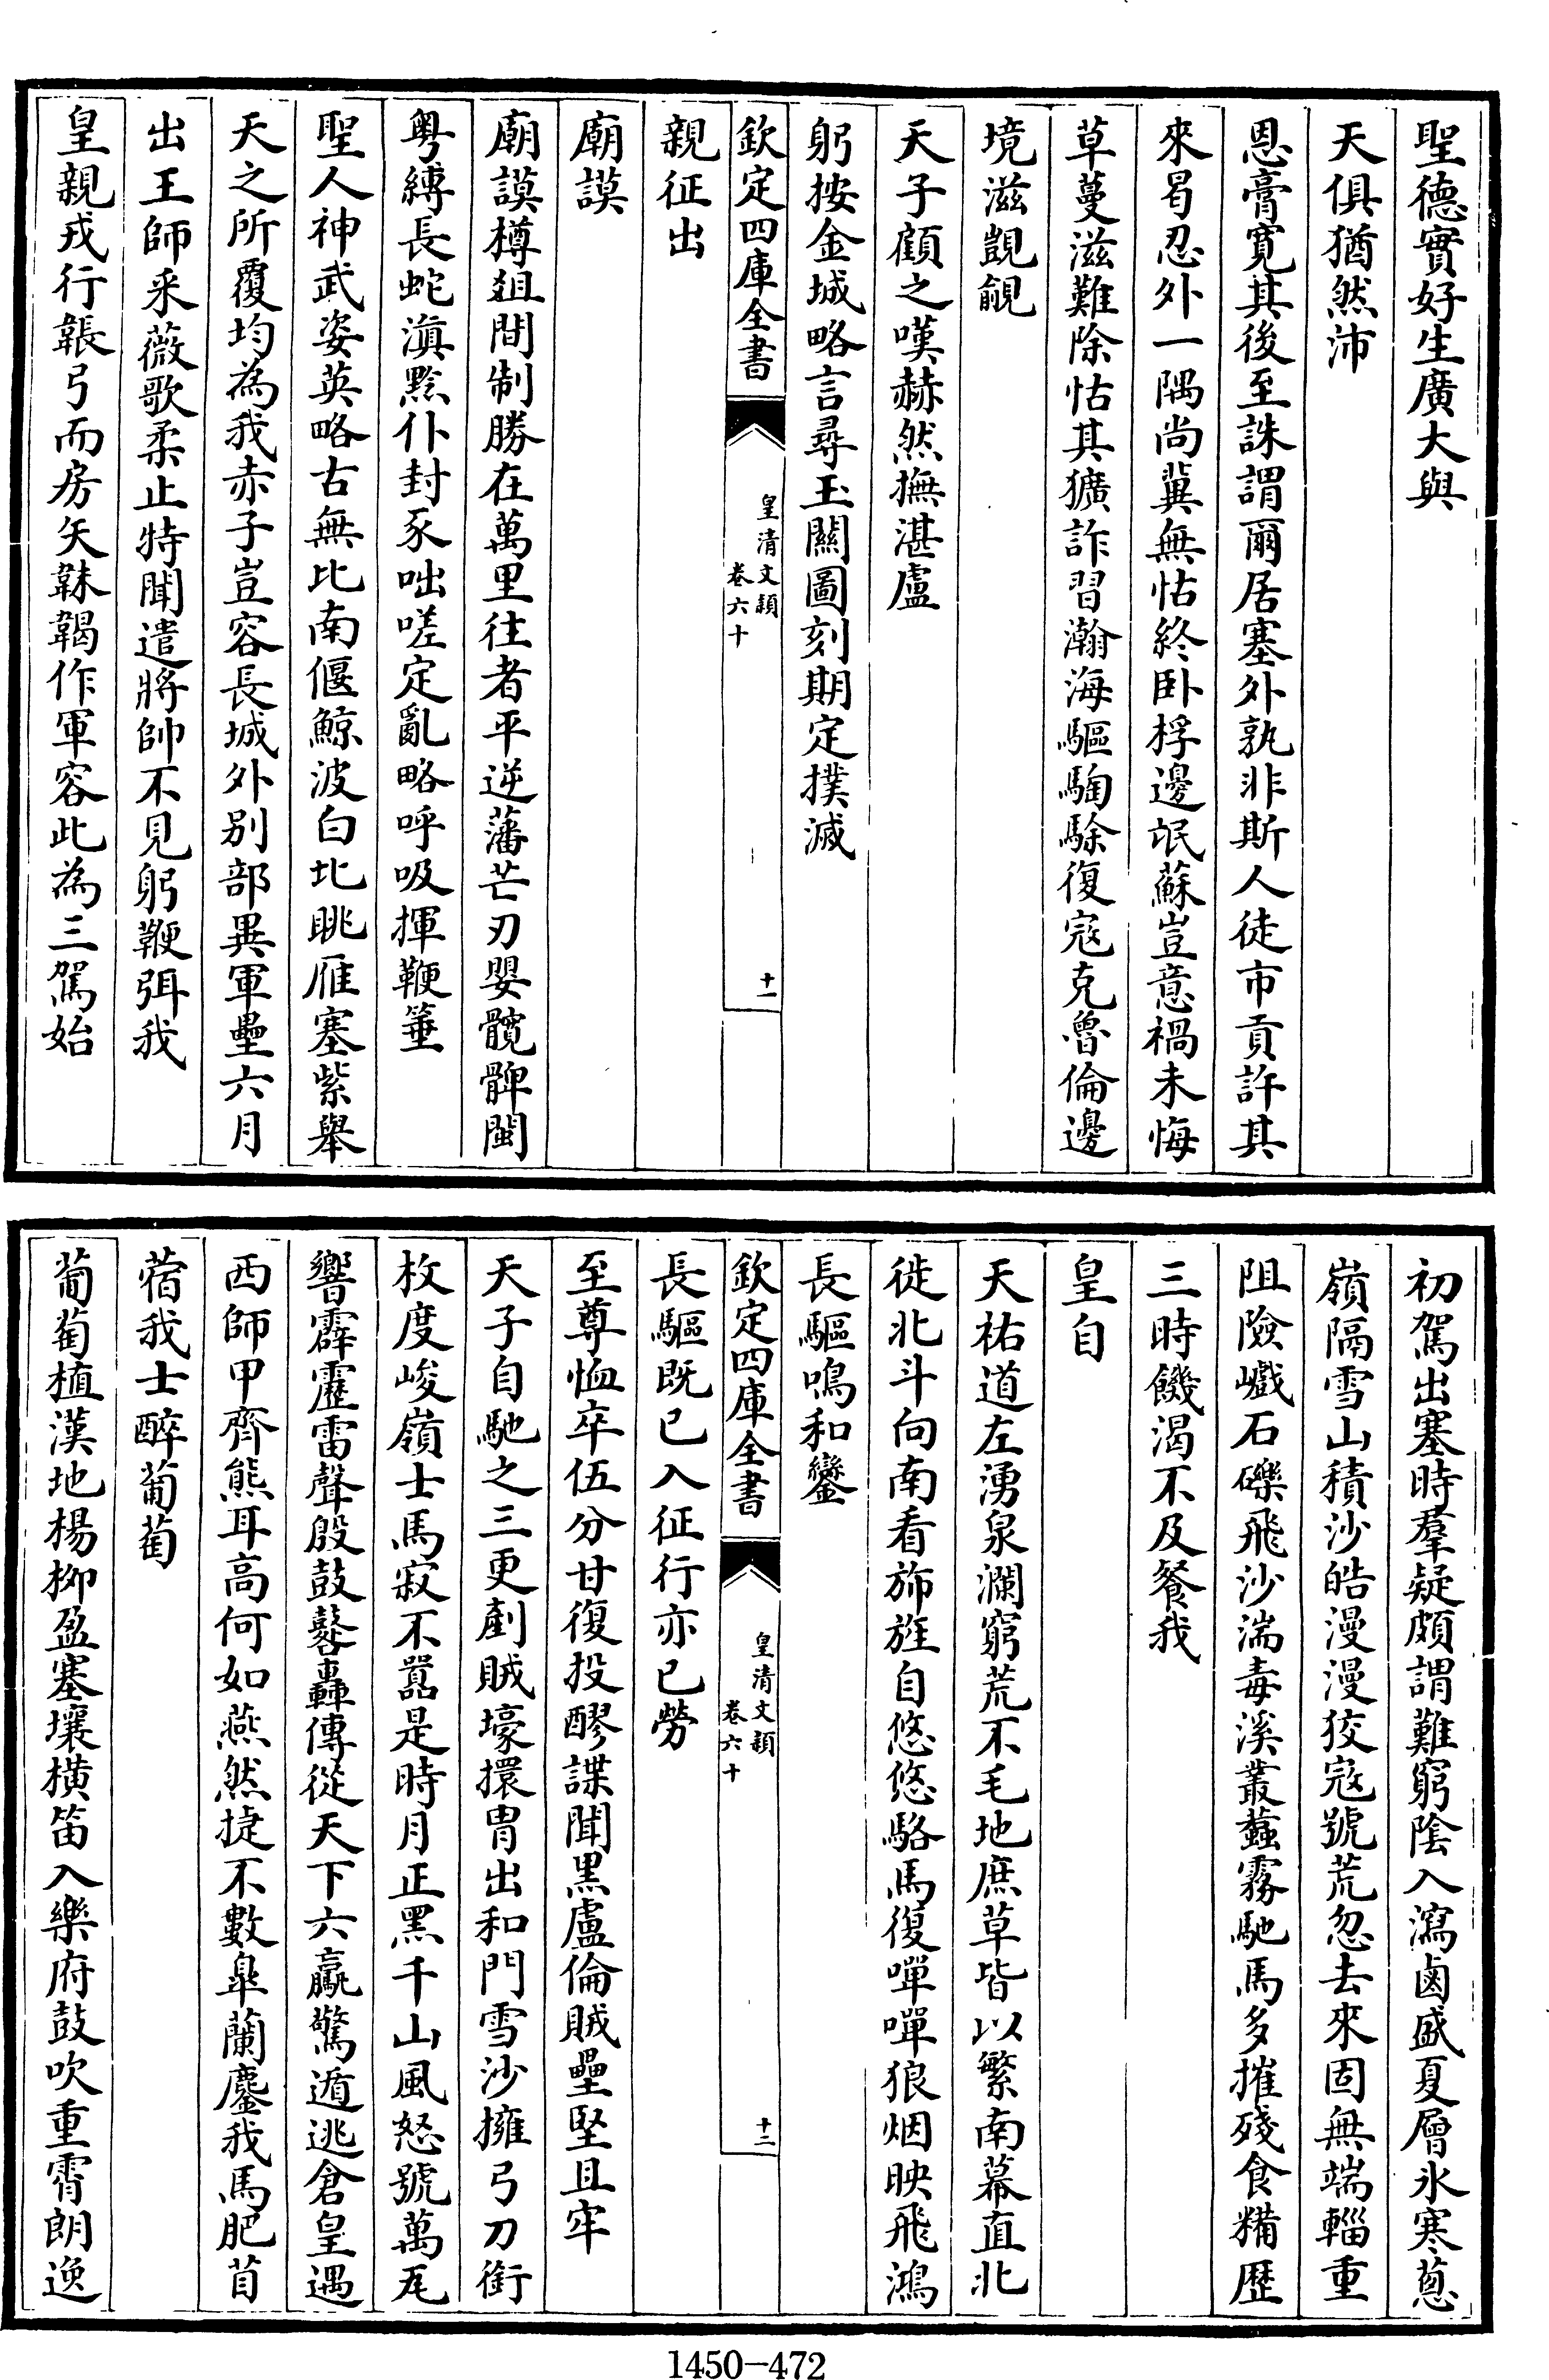 聖德實好生廣大與
天俱猶然沛
恩膏寛其後至誅謂爾居塞外孰非斯人徒市貢許其
來曷忍外一隅尚冀無怙終卧桴邊氓蘇豈意禍未悔
草蔓滋難除怙其獷詐習瀚海驅騊駼復寇克魯倫邊
境滋覬覦
天子顧之嘆赫然撫湛盧
躬按金城略言尋玉關圖刻期定撲滅
欽定四庫全書
皇清文穎
卷六十
十一
親征出
廟謨
廟謨樽俎間制勝在萬里往者平逆藩芒刃嬰髖髀閩
粤縛長蛇滇黔仆封豕咄嗟定亂略呼吸揮鞭箠
聖人神武姿英略古無比南偃鯨波白北眺雁塞紫舉
天之所覆均為我赤子豈容長城外别部異軍壘六月
出王師采薇歌柔止特聞遣將帥不見躬鞭弭我
皇親戎行韔弓而房矢韎韐作軍容此為三駕始
初駕出塞時羣疑頗謂難窮陰入瀉鹵盛夏層氷寒蔥
嶺隔雪山積沙皓漫漫狡寇號荒忽去來固無端輜重
阻險巇石礫飛沙湍毒溪叢蠚霧馳馬多摧殘食糒歴
三時饑渴不及餐我
皇自
天祐道左湧泉瀾窮荒不毛地庶草皆以繁南幕直北
徙北斗向南看斾旌自悠悠駱馬復嘽嘽狼烟映飛鴻
長驅鳴和鑾
欽定四庫全書
皇清文穎
卷六十
十二
長驅既已入征行亦已勞
至尊恤卒伍分甘復投醪諜聞黒盧倫賊壘堅且牢
天子自馳之三更剷賊壕擐胄出和門雪沙擁弓刀銜
枚度峻嶺士馬寂不嚣是時月正黑千山風怒號萬瓦
響霹靂雷聲殷鼓鼛轟傳從天下六驘驚遁逃倉皇遇
西師甲齊熊耳高何如燕然捷不數臯蘭鏖我馬肥苜
蓿我士醉葡萄
葡萄植漢地楊柳盈塞壤橫笛入樂府鼓吹重霄朗逸
1450-472